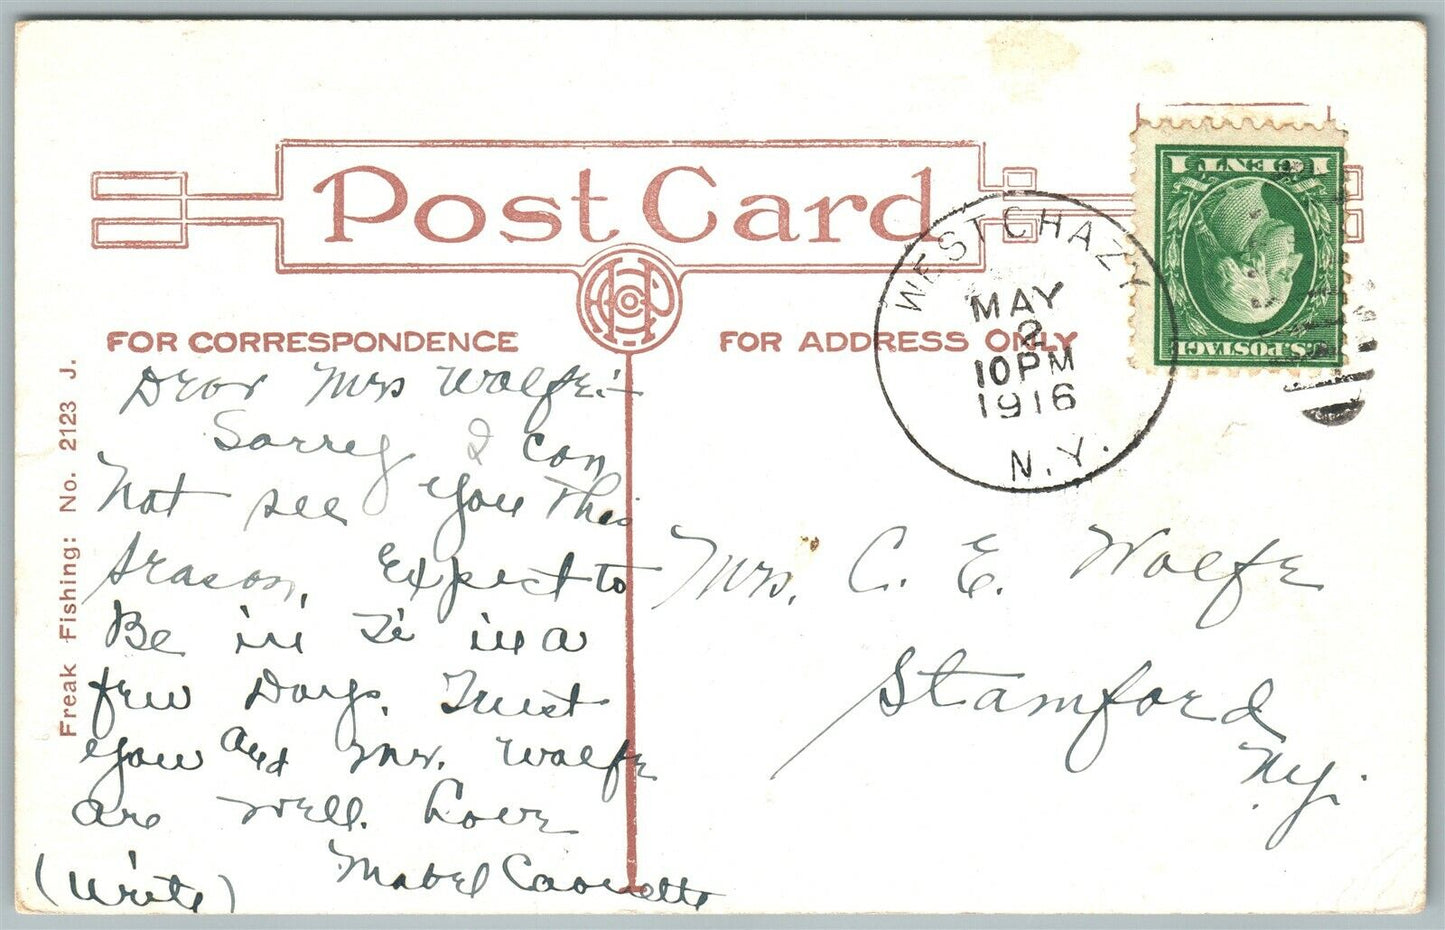 Post Card
FOR CORRESPONDENCE
FOR ADDRESS ONLY
WEST CHAZY
MAY
2
10 PM
1916
N.Y.
1 CENT 1
U.S. POSTAGE
Freak Fishing: No. 2123 J.
Dear Mrs Wolfe:-
Sorrey I can
not see you this
season, Expect to
Be in in a
few Days. Trust
you and Mr. Wolfe
are well. Love
Mabel
(Write)
Mrs. C. E. Wolfe
Stamford
N.Y.